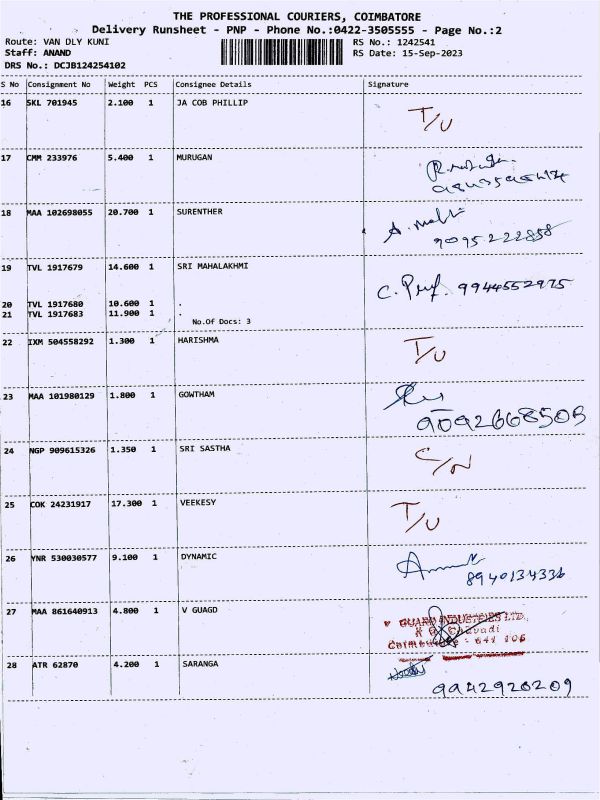 THE PROFESSIONAL COURIERS, COIMBATORE
Delivery Runsheet - PNP - Phone No.:0422-3505555 - Page No.:2
Route: VAN DLY KUNI RS No.: 1242541
Staff: ANAND RS Date: 15-Sep-2023
DRS No.: DCJB124254102
S No Consignment No Weight PCS Consignee Details Signature
16 SKL 701945 2.100 1 JA COB PHILLIP T/U
17 CMM 233976 5.400 1 MURUGAN
18 MAA 102698055 20.700 1 SURENTHER
9095222858
19 TVL 1917679 14.600 1 SRI MAHALAKHMI
9944552975
20 TVL 1917680 10.600 1 .
21 TVL 1917683 11.900 1 .
No.Of Docs: 3
22 IXM 504558292 1.300 1 HARISHMA T/U
23 MAA 101980129 1.800 1 GOWTHAM
9092668505
24 NGP 909615326 1.350 1 SRI SASTHA C/N
25 COK 24231917 17.300 1 VEEKESY T/U
26 YNR 530030577 9.100 1 DYNAMIC
8940134336
27 MAA 861640913 4.800 1 V GUAGD
V GUARD INDUSTRIES LTD.,
Coimbatore - 641 105
28 ATR 62870 4.200 1 SARANGA
9942920209